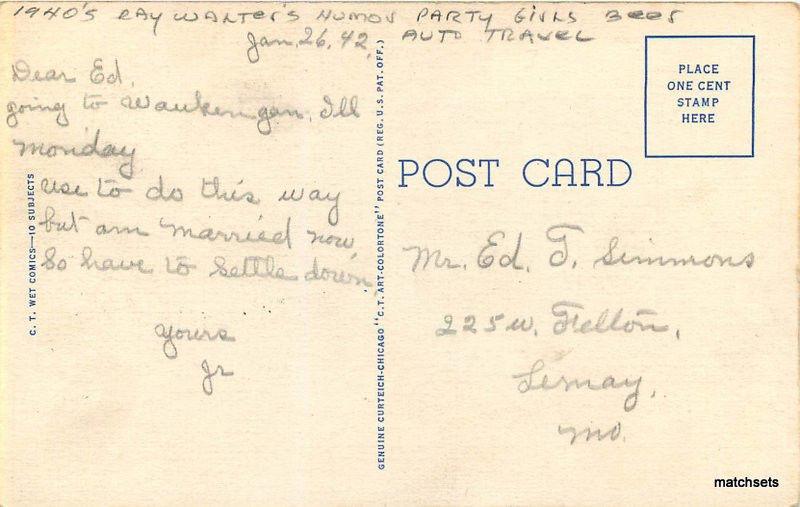 1940's RAY WALTER'S HUMOR PARTY GIRLS BEER
AUTO TRAVEL
Jan, 26, 42,
Dear Ed,
going to Waukengan, Ill
Monday
use to do this way
but am married now,
so have to settle down,
yours
Jr
C. T. WET COMICS—10 SUBJECTS
GENUINE CURTEICH-CHICAGO "C. T. ART-COLORTONE" POST CARD (REG. U. S. PAT. OFF.)
PLACE
ONE CENT
STAMP
HERE
POST CARD
Mr. Ed. T. Simmons
225 W. Felton,
Lemay,
Mo.
matchsets